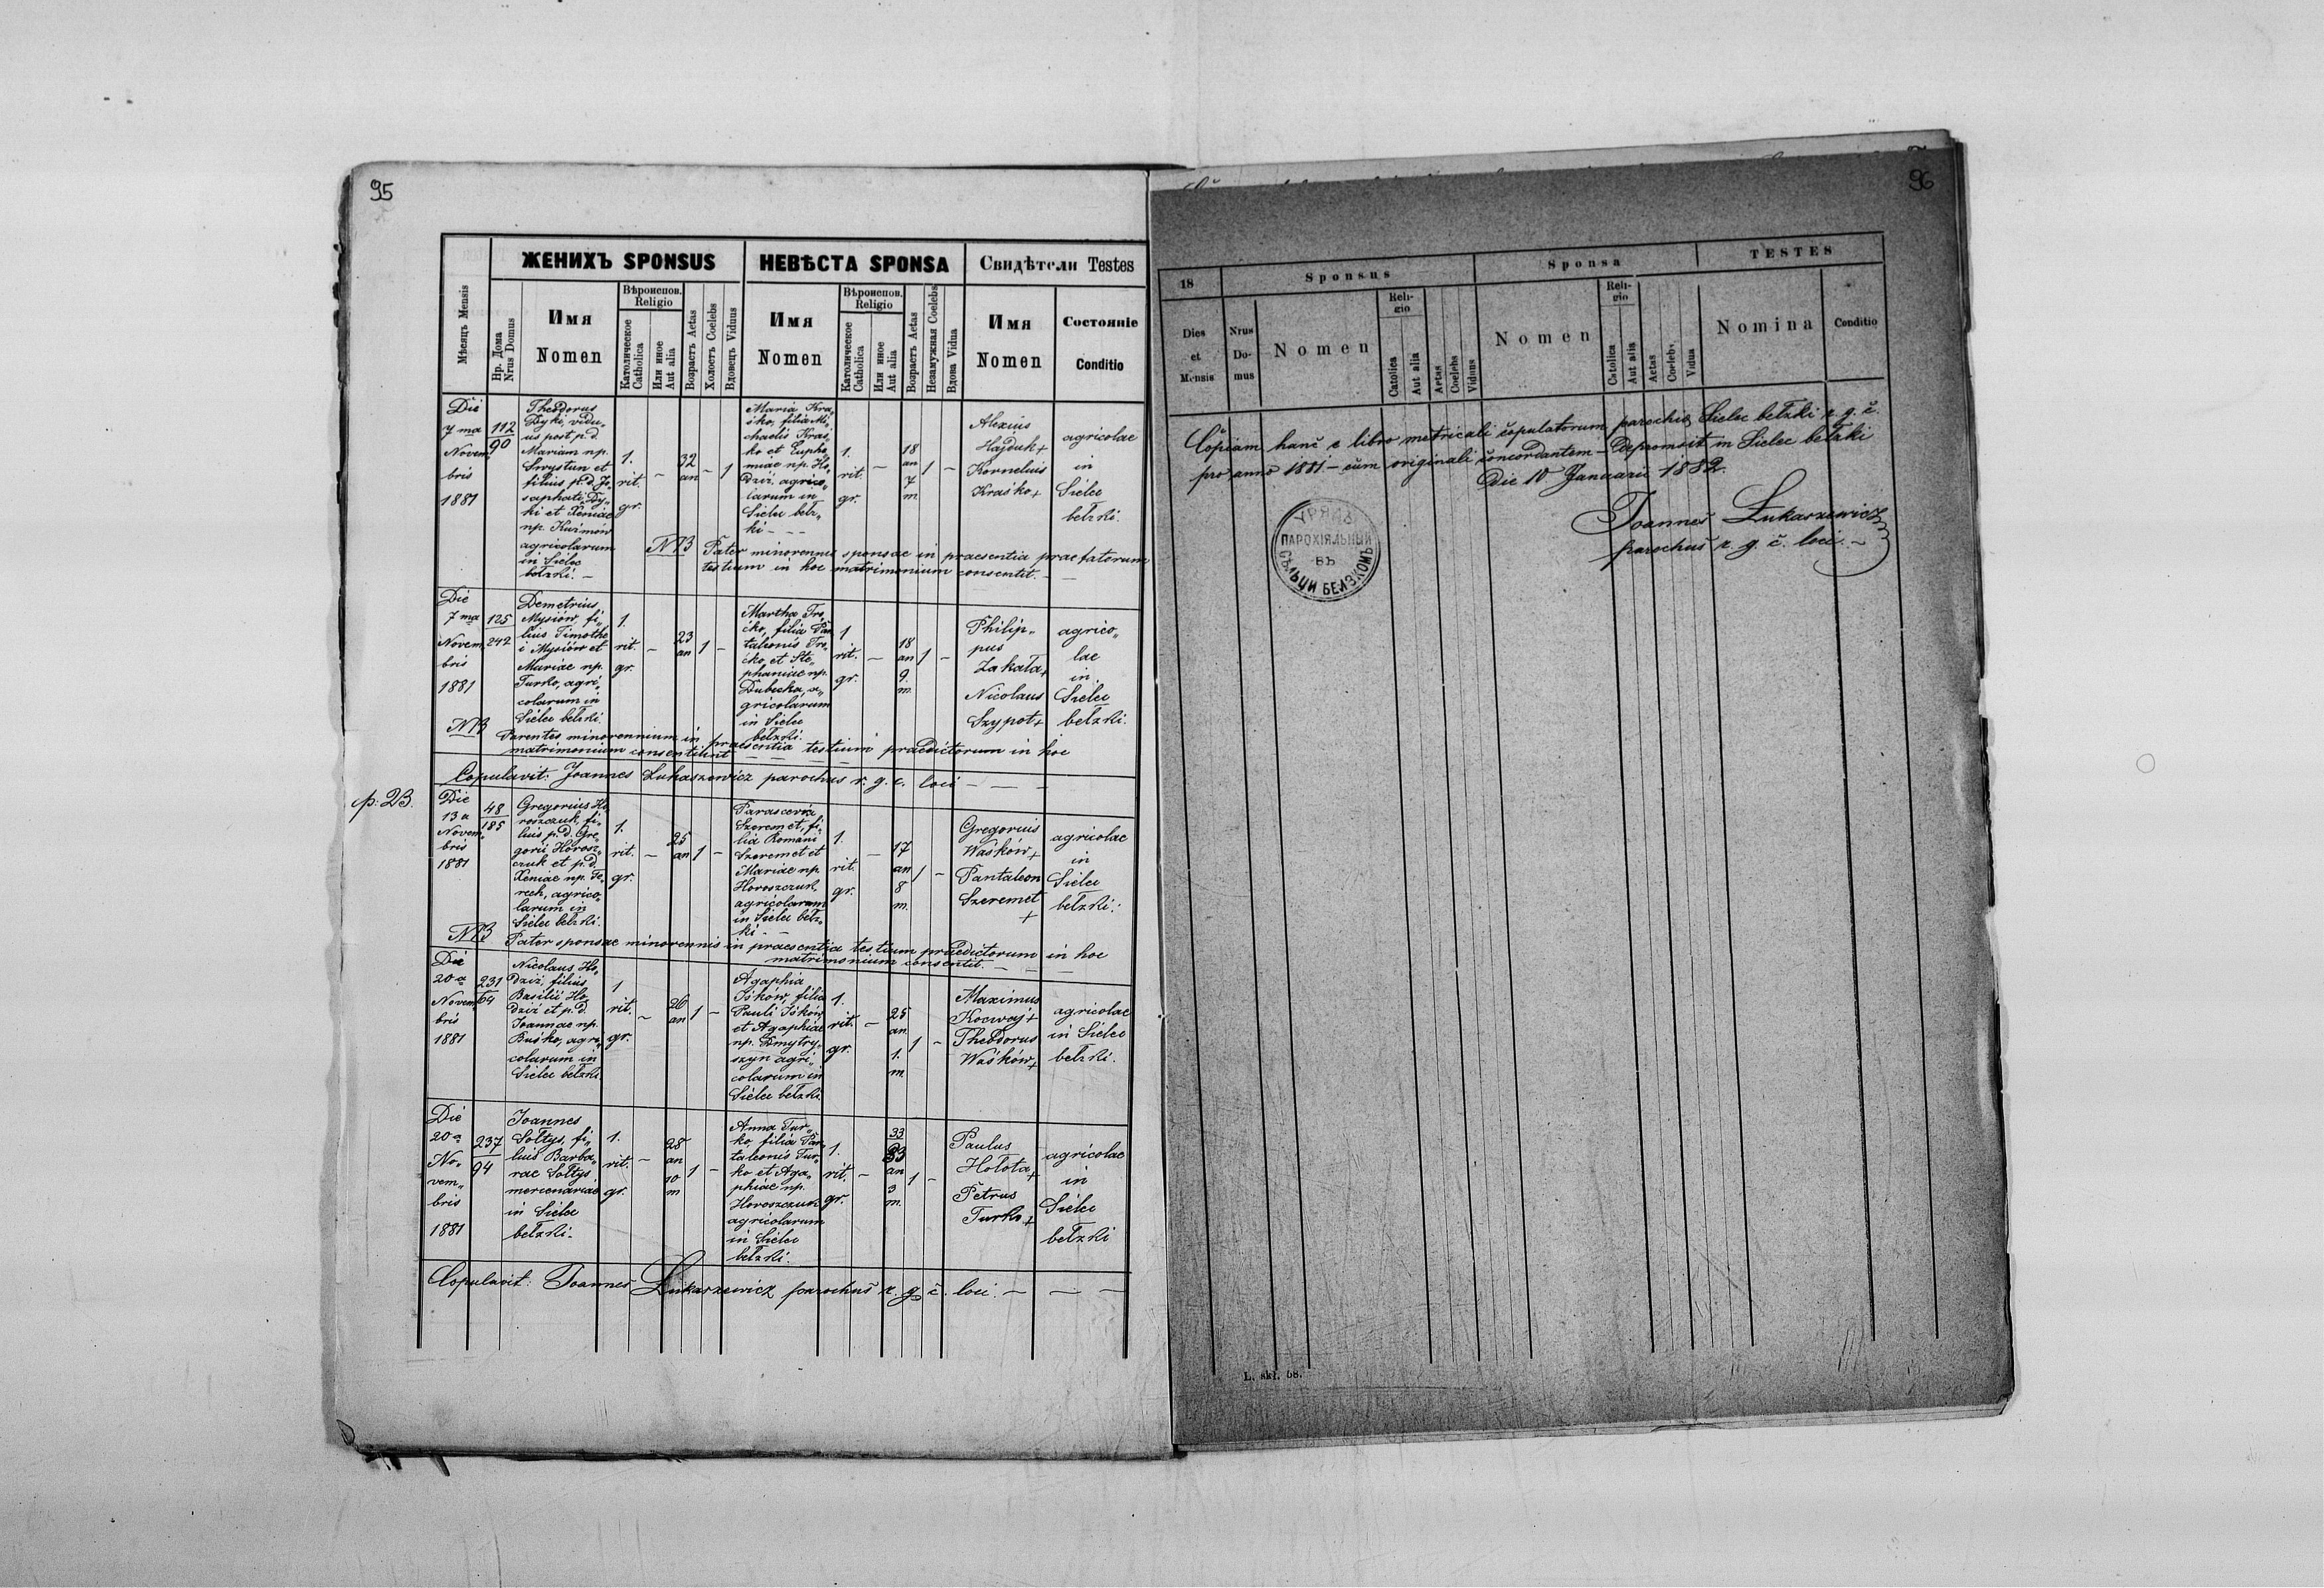 95
ЖЕНИХЪ SPONSUS
НЕВѢСТА SPONSA
Свидѣтели Testes
Мѣсяцъ Mensis
Нр. Дома
Nrus Domus
Имя
Nomen
Вѣроиспов.
Religio
Католическое
Catholica
Или иное
Aut alia
Возрастъ Aetas
Холостъ Coelebs
Вдовецъ Viduus
Имя
Nomen
Вѣроиспов.
Religio
Католическое
Catholica
Или иное
Aut alia
Возрастъ Aetas
Незамужная Coelebs
Вдова Vidua
Имя
Nomen
Состояніе
Conditio
Die
7 ma
Novem„
bris
1881
112
90
Theodorus
Dyki, vidu„
us post p.d.
Mariam np.
filius p.d. Jo„
saphati Dy„
ki et Xeniae
np. Kuźmów
agricolarum
in Sielec
bełzki. —
1.
rit.
gr.
—
32
an
—
1
Maria Kra„
śko, filia Mi„
chaelis Kraś„
ko et Euphe„
miae np. Ho„
dziż, agrico„
larum in
Sielec bełz„
ki — — —
1.
rit.
gr.
—
18
an
7
m
1
—
Alexius
Hajduk +
Kornelius
Kraśko +
agricolae
in
Sielec
bełzki.
NB Pater minorennis sponsae in praesentia praefatorum
testium in hoc matrimonium consentit. —
Die
7 ma
Novem„
bris
1881
125
242
Demetrius
Mysiów, fi„
lius Timothe
i Mysiów et
Mariae np.
Turko, agri„
colarum in
Sielec bełzki
1.
rit.
gr.
—
23
an
1
—
Martha Tro„
ćko, filia Pan
taleonis Tro„
ćko, et Ste„
phaniae np.
Dubecka, a„
gricolarum
in Sielec
bełzki.
1
rit.
gr.
—
18
an
9.
m.
1
—
Philip„
pus
Zakała +
Nicolaus
Szypot +
agrico„
lae
in
Sielec
bełzki.
NB Parentes minorennium in praesentia testium praedictorum in hoc
matrimonium consentiunt — — — —
Copulavit: Joannes Łukaszewicz parochus r. g. c. loci — — —
p. 23.
Die
13 a
Novem„
bris
1881
48
185
Gregorius Ho
roszczuk, fi„
lius p.d. Gre„
gorii Horosz„
czuk et p.d.
Xeniae np. Te„
rech, agrico„
larum in
Sielec bełzki.
1.
rit.
gr.
—
25
an
1
—
Parascevia
Szeremet, fi„
lia Romani
Szeremet et
Mariae np
Horoszczuk,
agricolarum
in Sielec bełz„
ki — —
1.
rit.
gr.
—
17
an
8
m.
1
—
Gregorius
Waśków +
Pantaleon
Szeremet
+
agricolae
in
Sielec
bełzki:
NB Pater sponsae minorennis in praesentia testium praedictorum in hoc
matrimonium consentit. — — —
Die
20 a
Novem„
bris
1881
231
64
Nicolaus Ho„
dziż, filius
Basilii Ho„
dziż et p.d.
Joannae np.
Buśko, agri„
colarum in
Sielec bełzki
1
rit.
gr.
—
26
an
1
—
Agaphia
Iśków, filia
Pauli Iśków
et Agaphiae
np. Dmytry„
szyn agri„
colarum in
Sielec bełzki.
1.
rit.
gr.
—
25
an
1.
m
1
—
Maximus
Kocwaj +
Theodorus
Waśków +
agricolae
in Sielec
bełzki.
Die
20 a
No„
vem„
bris
1881
237
94
Joannes
Sołtys, fi„
lius Barba„
rae Sołtys
mercenariae
in Sielec
bełzki.
1.
rit.
gr.
—
28
an
10
m
1
—
Anna Tur„
ko, filia Pan„
taleonis Tur„
ko et Aga„
phiae np.
Horoszczuk
agricolarum
in Sielec
bełzki.
1.
rit.
gr.
—
33
33
an
3
m.
1
—
Paulus
Hołota +
Petrus
Turko +
agricolae
in
Sielec
bełzki
Copulavit: Joannes Łukaszewicz parochus r. g. c. loci. — — —
96
18
Sponsus
Sponsa
TESTES
Dies
et
Mensis
Nrus
Do-
mus
Nomen
Reli-
gio
Catolica
Aut alia
Aetas
Coelebs
Viduus
Nomen
Reli-
gio
Catolica
Aut alia
Aetas
Coelebs
Vidua
Nomina
Conditio
Copiam hanc e libro metricali copulatorum parochiae Sielec bełzki r. g. c.
pro anno 1881 — cum originali concordantem — Depromsit in Sielec bełzki
Die 10 Januarii 1882.
Joannes Łukaszewicz
parochus r. g. c. loci. —
УРЯДЪ
ПАРОХІЯЛЬНЫЙ
ВЪ
СѢЛЬЦИ БЕЛЗКОМЪ
L. skł. 68.